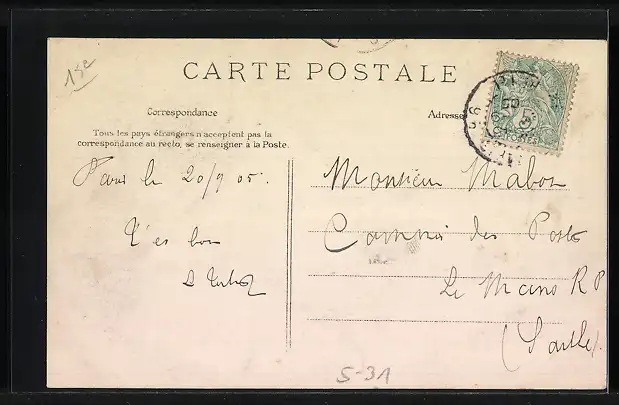 18e
CARTE POSTALE
Correspondance
Adresse
Tous les pays étrangers n'acceptent pas la
correspondance au recto, se renseigner à la Poste.
Paris le 20/9 05.
Monsieur Mabon
Commis des Postes
Le Mans RP
(Sarthe)
S-31